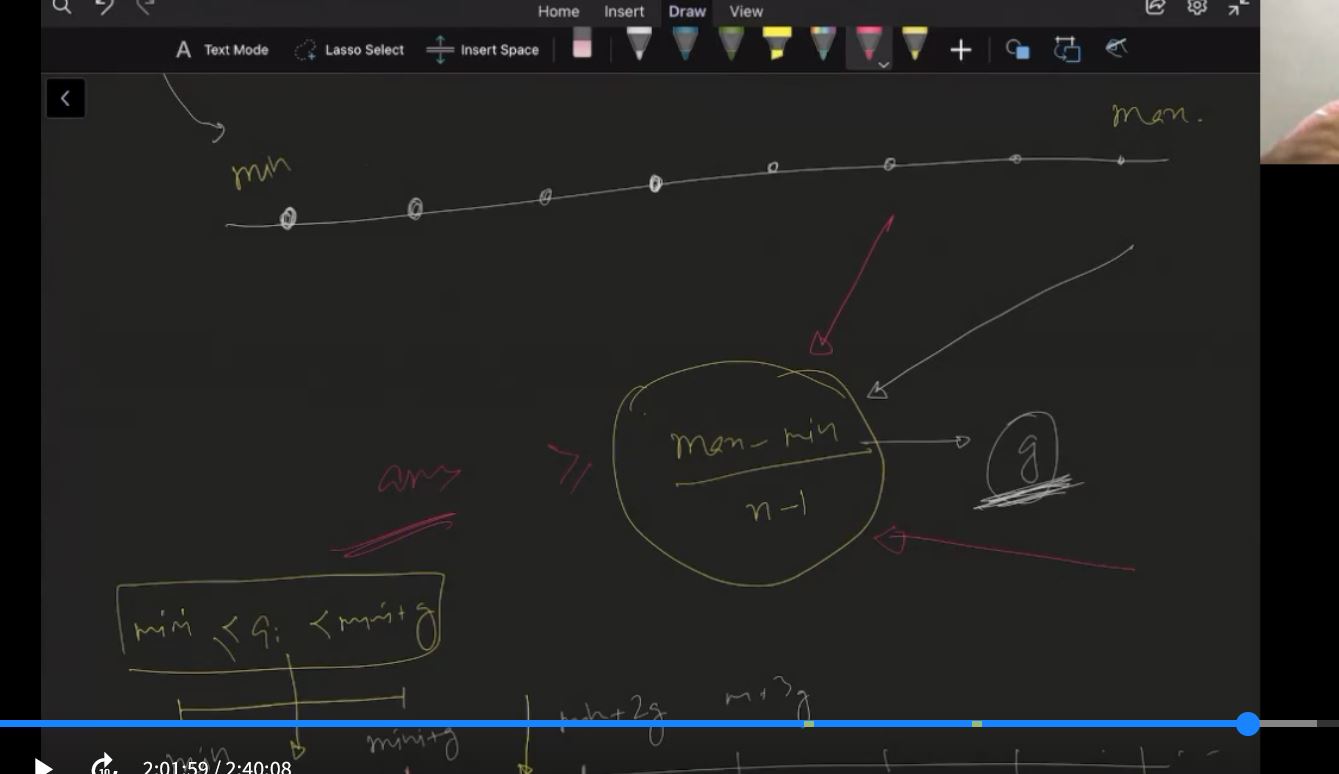 Home Insert Draw View
Text Mode Lasso Select Insert Space
max.
min
max - min
n-1
g
ans ≥
min ≤ a; < min + g
min min+g min+2g m+3g
10
2:01:59 / 2:40:08